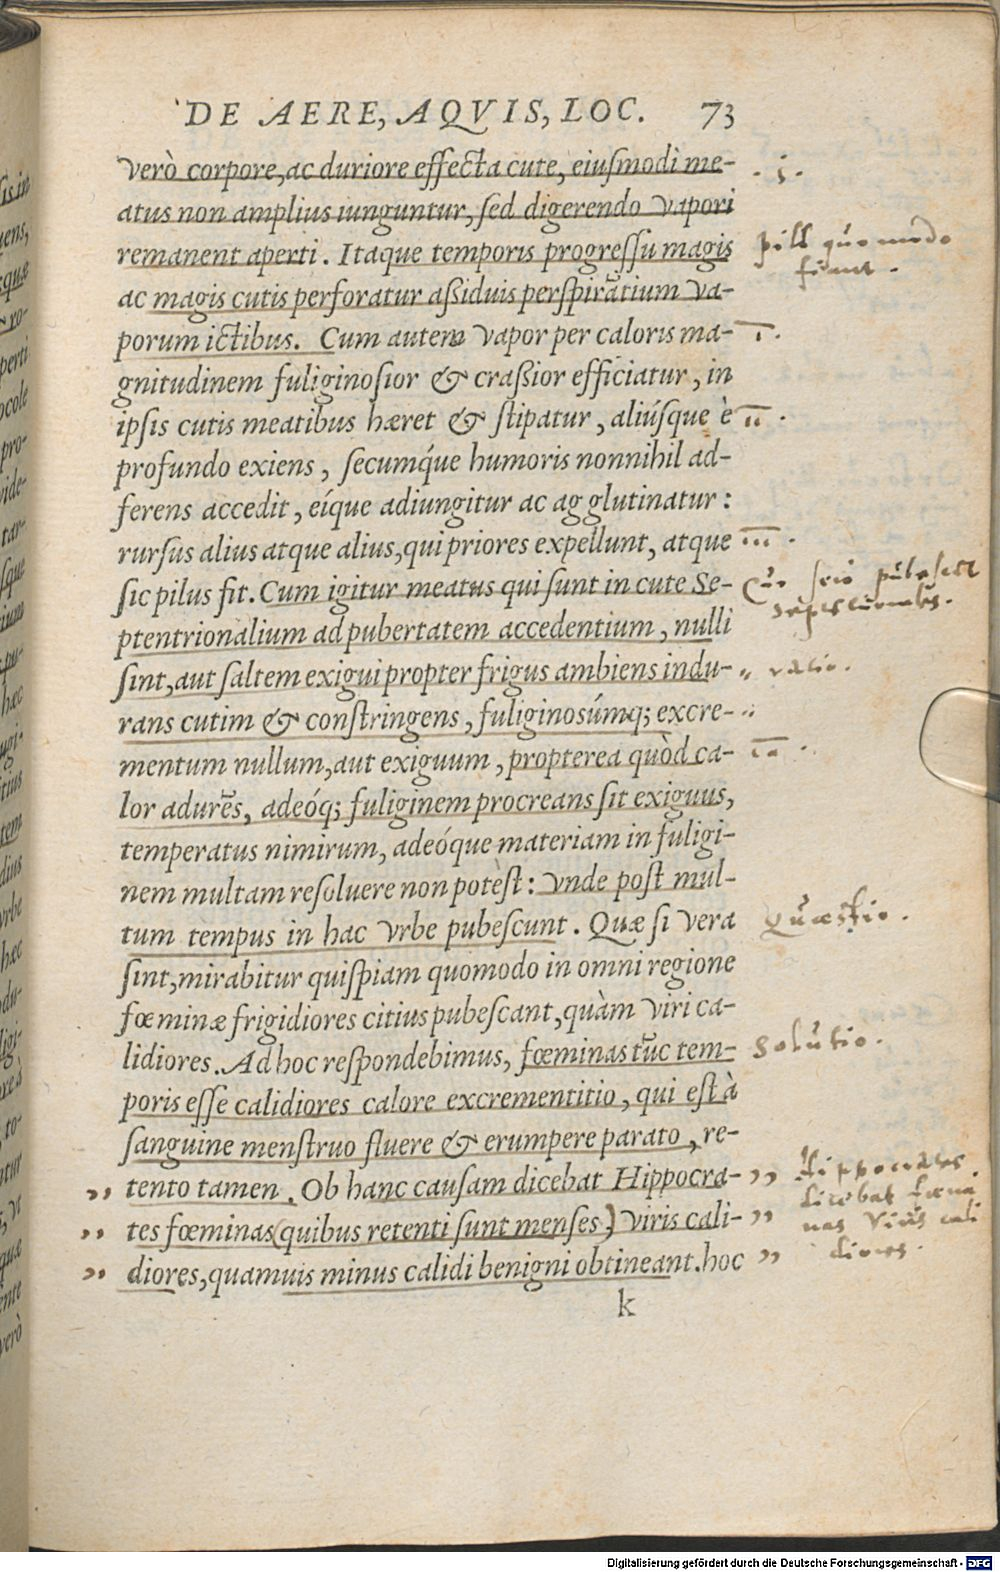 DE AERE, AQVIS, LOC. 73
verò corpore, ac duriore effecta cute, eiuſmodi me-
atus non amplius iunguntur, ſed digerendo vapori
remanent aperti. Itaque temporis progreſſu magis
ac magis cutis perforatur aßiduis perſpirãtium va-
porum ictibus. Cum autem vapor per caloris ma-
gnitudinem fuliginoſior & craßior efficiatur, in
ipſis cutis meatibus hæret & ſtipatur, aliúſque è
profundo exiens, ſecumq́ue humoris nonnihil ad-
ferens accedit, eíque adiungitur ac agglutinatur:
rurſus alius atque alius, qui priores expellunt, atque
ſic pilus fit. Cum igitur meatus qui ſunt in cute Se-
ptentrionalium ad pubertatem accedentium, nulli
ſint, aut ſaltem exigui propter frigus ambiens indu-
rans cutim & conſtringens, fuliginosúmq; excre-
mentum nullum, aut exiguum, propterea quòd ca-
lor adurẽs, adeóq; fuliginem procreans ſit exiguus,
temperatus nimirum, adeóque materiam in fuligi-
nem multam reſoluere non potèſt: vnde poſt mul-
tum tempus in hac vrbe pubeſcunt. Quæ ſi vera
ſint, mirabitur quiſpiam quomodo in omni regione
fœminæ frigidiores citius pubeſcant, quàm viri ca-
lidiores. Ad hoc reſpondebimus, fœminas tũc tem-
poris eſſe calidiores calore excrementitio, qui eſt à
ſanguine menſtruo fluere & erumpere parato, re-
tento tamen. Ob hanc cauſam dicebat Hippocra-
tes fœminas (quibus retenti ſunt menſes) viris cali-
diores, quamuis minus calidi benigni obtineant. hoc
k
pili quomodo
fiunt.
Cur ſero pubeſcũt
ratio.
Quæſtio.
Solutio.
Hippocrates
dicebat fœmi
nas viris cali
diores.
Digitalisierung gefördert durch die Deutsche Forschungsgemeinschaft - DFG